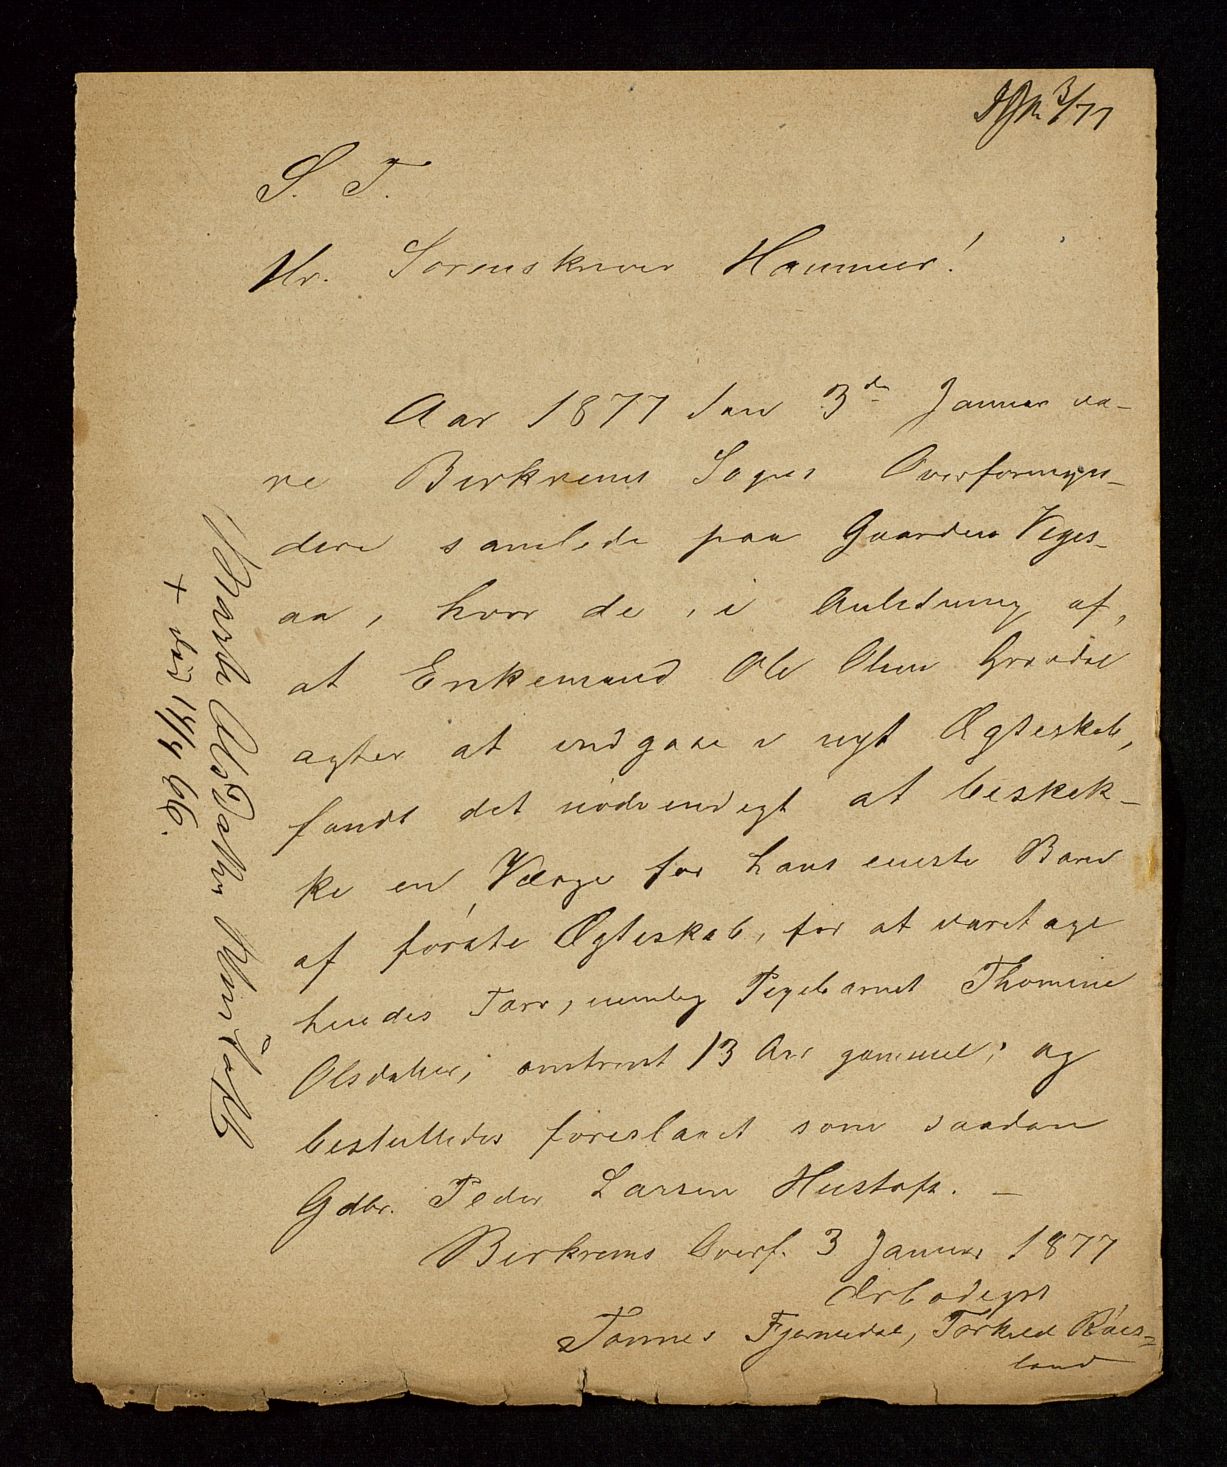 S. T.
Hr. Sorenskriver Hammer!
Aar 1877 den 3de Januar va-
re Birkrems Sogns Overformyn-
dere samlede paa Gaarden Veges-
aa, hvor de, i Anledning af,
at Enkemand Ole Olsen Gravdal
agter at indgaae i nyt Ægteskab,
fandt det nödvendigt at beskik-
ke en Værge for hans eneste Barn
af förste Ægteskab, for at varetage
hendes Tarv, nemlig Pigebarnet Thomine
Olsdatter, omtrent 13 Aar gammel; og
bestilledes foreslaaet som saadan
Gdbr. Peder Larsen Hustoft. —
Birkrems Overf. 3 Januar 1877
Ærbödigst
Tönnes Fjermedal, Törkild Röis-
land
Olsdatter
+ död 14/4 66.